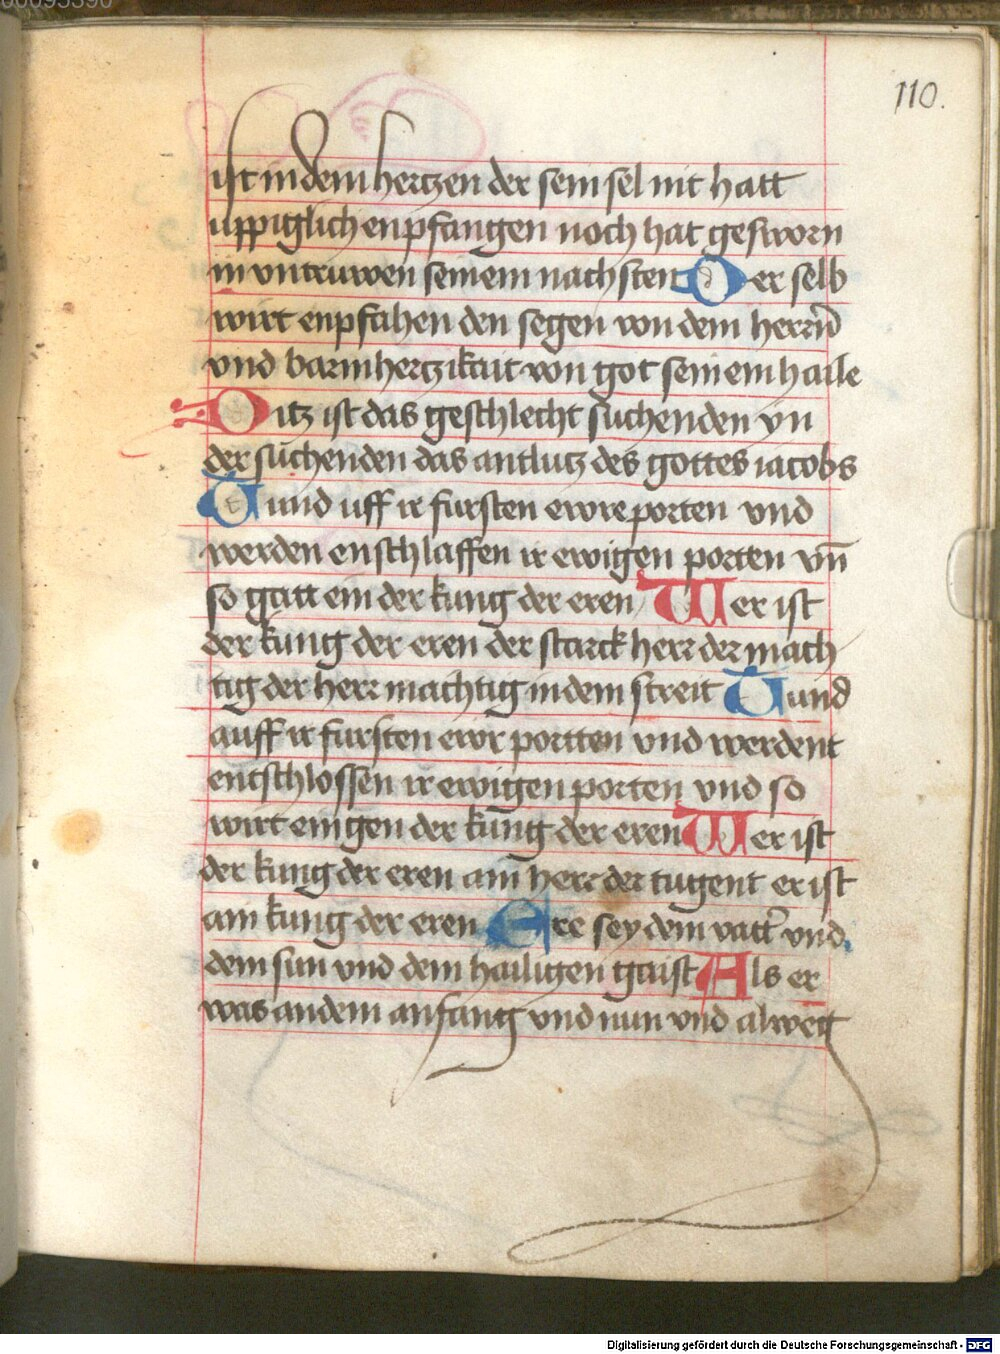 110.
ist in dem hertzen der sein sel nit hatt
uppiglich enpfangen noch hat gesworn
in vntruwen seinem nachsten Der selb
wirt enpfahen den segen von dem herrn̄
vnd barmhertzikait von got seinem haile
Ditz ist das geschlecht suchenden vn
der suchenden das antlutz des gottes iacobs
Tund uff ir fursten ewre porten vnd
werden enschlaffen ir ewigen porten vn̄
so gatt ein der kung der eren Wer ist
der kung der eren der starck herr der mach
tig der herr machtig in dem streit Tund
auff ir fursten ewr portten vnd werdent
entschlossen ir ewigen porten vnd so
wirt eingen der kung der eren Wer ist
der kung der eren ain herr der tugent er ist
ain kung der eren Ere sey dem vatt̉ vnd
dem sun vnd dem hailigen gaist Als er
was an dem anfang vnd nun vnd alweg
Digitalisierung gefördert durch die Deutsche Forschungsgemeinschaft - DFG